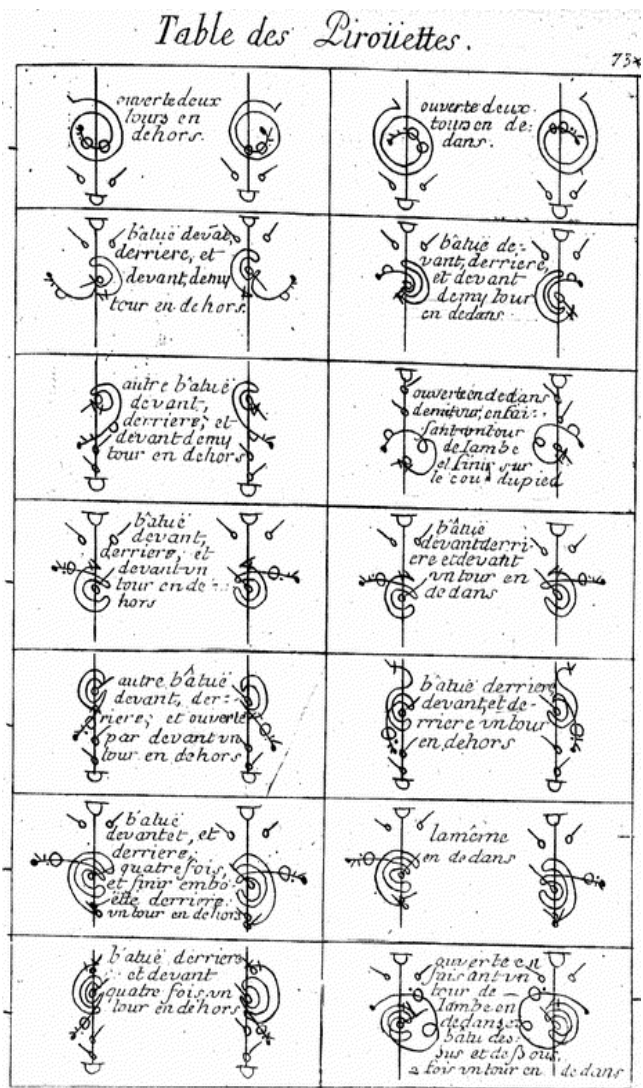 Table des Piroüettes.
73*
ouverte deux
tours en
dehors.
ouverte deux
tours en de-
dans.
b'atuë devāt,
derriere, et
devant, demy
tour en dehors.
bâtuë de-
vant, derriere,
et devant
demy tour
en dedans
autre b'atuë
devant,
derriere; et
devant demy
tour en dehors
ouverte en dedans
demi tour, en fai-
sant un tour
de Iambe
et finir sur
le cou du pied
b'atuë
devant,
derriere, et
devant vn
tour en de-
hors
bâtuë
devant derri
ere et devant
vn tour en
dedans
autre bâtuë
devant, der-
riere; et ouverte
par devant vn
tour en dehors
b'atuë derriere
devant, et de-
rriere vn tour
en dehors
b'atuë
devantet, et
derriere,
quatre fois,
et finir embo-
ëtté derriere.
vn tour en dehors
la même
en dedans
b'atuë derriere
et devant
quatre fois vn
tour en dehors
ouverte en
faisant vn
tour de
Iambe en
dedans
batu des-
sus et deßous.
2 fois vn tour en dedans